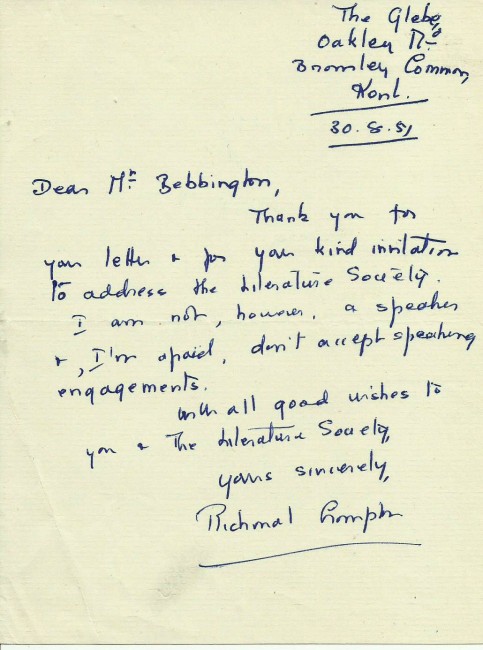 The Glebe,
Oakley Rd
Bromley Common,
Kent.
30.8.51
Dear Mr Bebbington,
Thank you for
your letter & for your kind invitation
to address the Literature Society.
I am not, however, a speaker
&, I'm afraid, don't accept speaking
engagements.
With all good wishes to
you & The Literature Society,
Yours sincerely,
Richmal Crompton